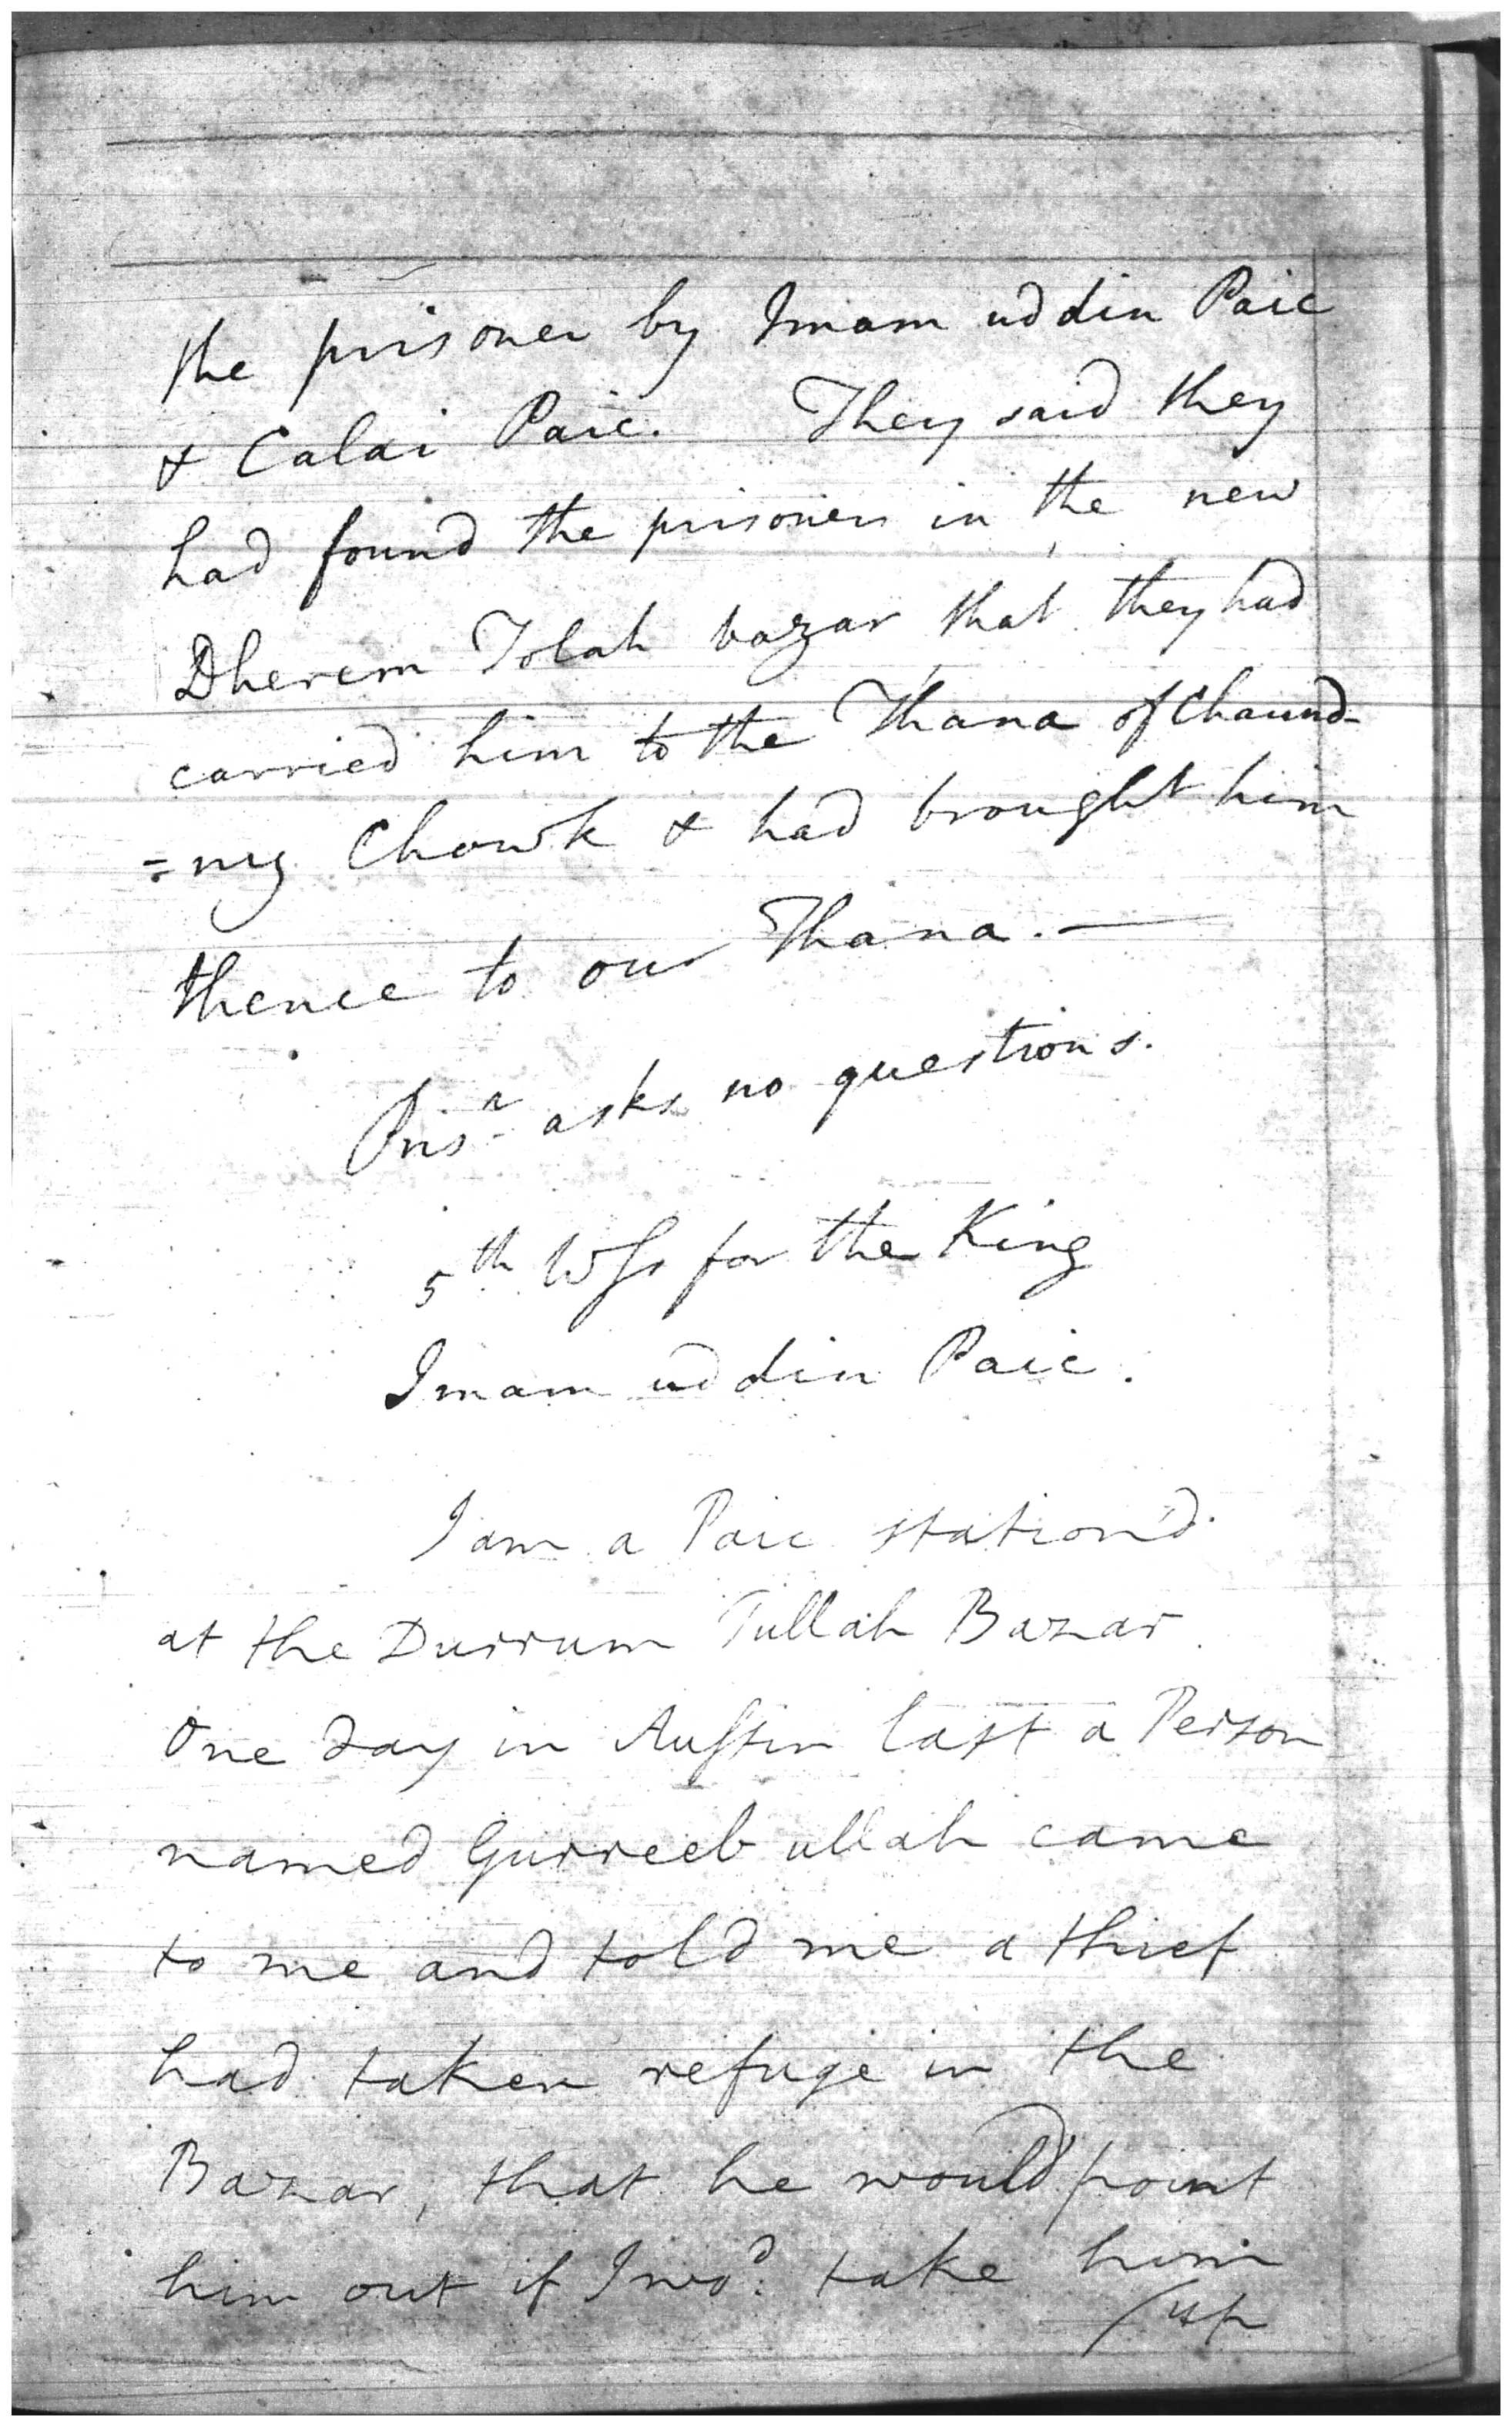 the prisoner by Imam uddin Paic
& Calai Paic. They said they
had found the prisoner in the new
Dherem Tolah bazar, that they had
carried him to the Thana of Chaund-
=ny Chowk & had brought him
thence to our Thana.—
Prisr asks no questions.
5th Wss for the King
Imam uddin Paic.
I am a Paic station'd
at the Durrum Tullah Bazar.
One day in Aussin last a Person
named Gurreeb ullah came
to me and told me a thief
had taken refuge in the
Bazar, that he would point
him out if I wod. take him
up